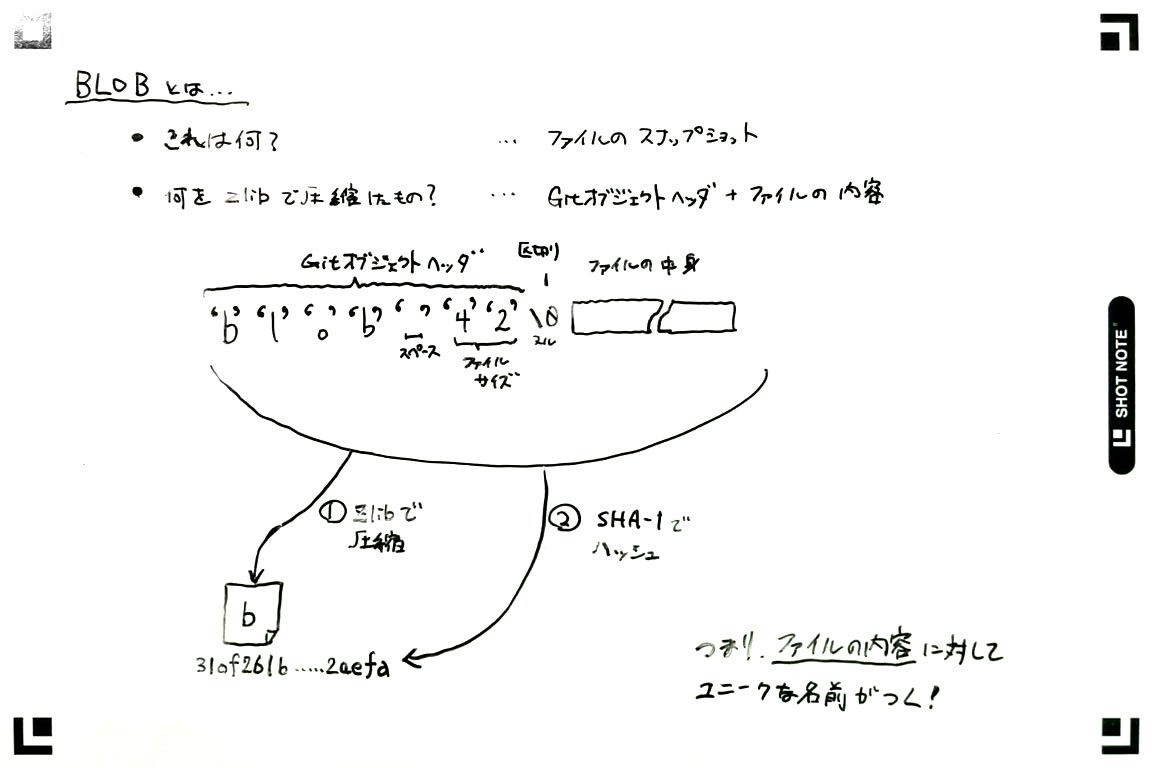 BLOBとは...
• これは何? ... ファイルのスナップショット
• 何をzlibで圧縮したもの? ... Gitオブジェクトヘッダ + ファイルの内容
Gitオブジェクトヘッダ 区切り ファイルの中身
'b' 'l' 'o' 'b' ' ' '4' '2' \0
スペース ファイルサイズ ヌル
① zlibで
圧縮
② SHA-1で
ハッシュ
b
310f261b.....2aefa
つまり、ファイルの内容に対して
ユニークな名前がつく!
SHOT NOTE